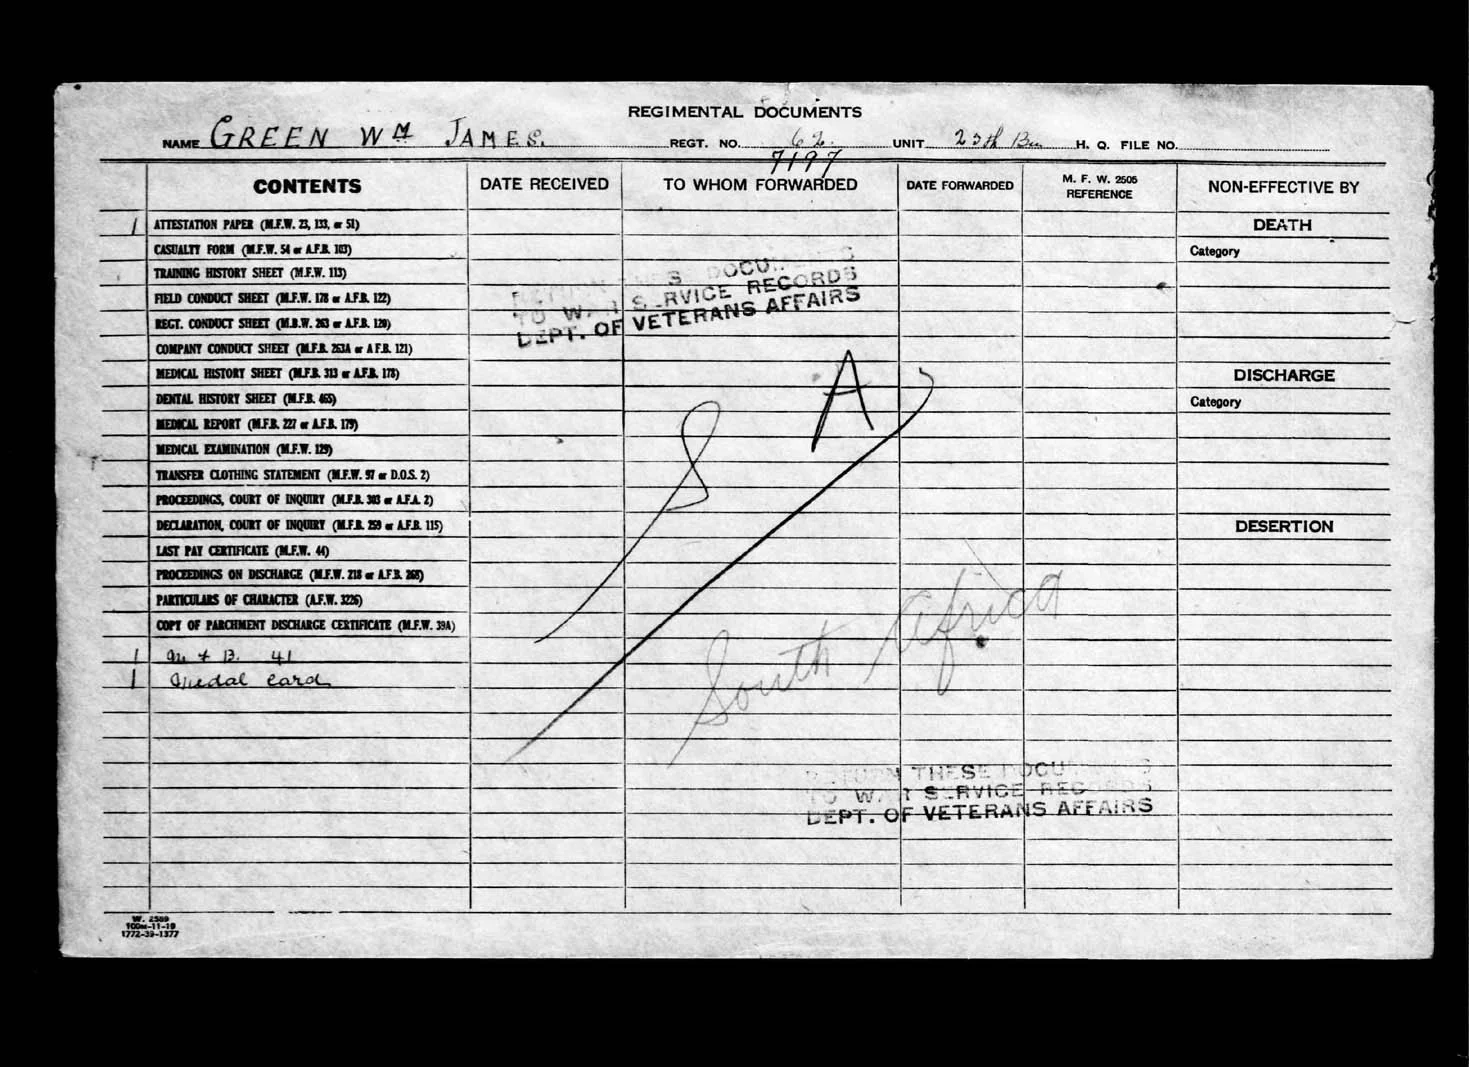 REGIMENTAL DOCUMENTS
NAME GREEN WM JAMES. REGT. NO. 62. UNIT 25th Bn H. Q. FILE NO.
7197
CONTENTS DATE RECEIVED TO WHOM FORWARDED DATE FORWARDED M. F. W. 2505 REFERENCE NON-EFFECTIVE BY
1 ATTESTATION PAPER (M.F.W. 23, 133, or 51) DEATH
CASUALTY FORM (M.F.W. 54 or A.F.B. 103) Category
TRAINING HISTORY SHEET (M.F.W. 113)
FIELD CONDUCT SHEET (M.F.W. 178 or A.F.B. 122)
REGT. CONDUCT SHEET (M.B.W. 263 or A.F.B. 120)
RETURN THESE DOCUMENTS
TO WAR SERVICE RECORDS
DEPT. OF VETERANS AFFAIRS
COMPANY CONDUCT SHEET (M.F.B. 263A or A.F.B. 121)
MEDICAL HISTORY SHEET (M.F.B. 313 or A.F.B. 178) DISCHARGE
DENTAL HISTORY SHEET (M.F.B. 465) Category
S A
MEDICAL REPORT (M.F.B. 227 or A.F.B. 179)
MEDICAL EXAMINATION (M.F.W. 129)
TRANSFER CLOTHING STATEMENT (M.F.W. 97 or D.O.S. 2)
PROCEEDINGS, COURT OF INQUIRY (M.F.B. 303 or A.F.A. 2)
DECLARATION, COURT OF INQUIRY (M.F.B. 259 or A.F.B. 115) DESERTION
LAST PAY CERTIFICATE (M.F.W. 44)
PROCEEDINGS ON DISCHARGE (M.F.W. 218 or A.F.B. 268)
PARTICULARS OF CHARACTER (A.F.W. 3226)
COPY OF PARCHMENT DISCHARGE CERTIFICATE (M.F.W. 39A)
South Africa
1 M + B. 41
1 Medal Card
RETURN THESE DOCUMENTS
TO WAR SERVICE RECORDS
DEPT. OF VETERANS AFFAIRS
W. 2589
100M-11-19
1772-39-1377